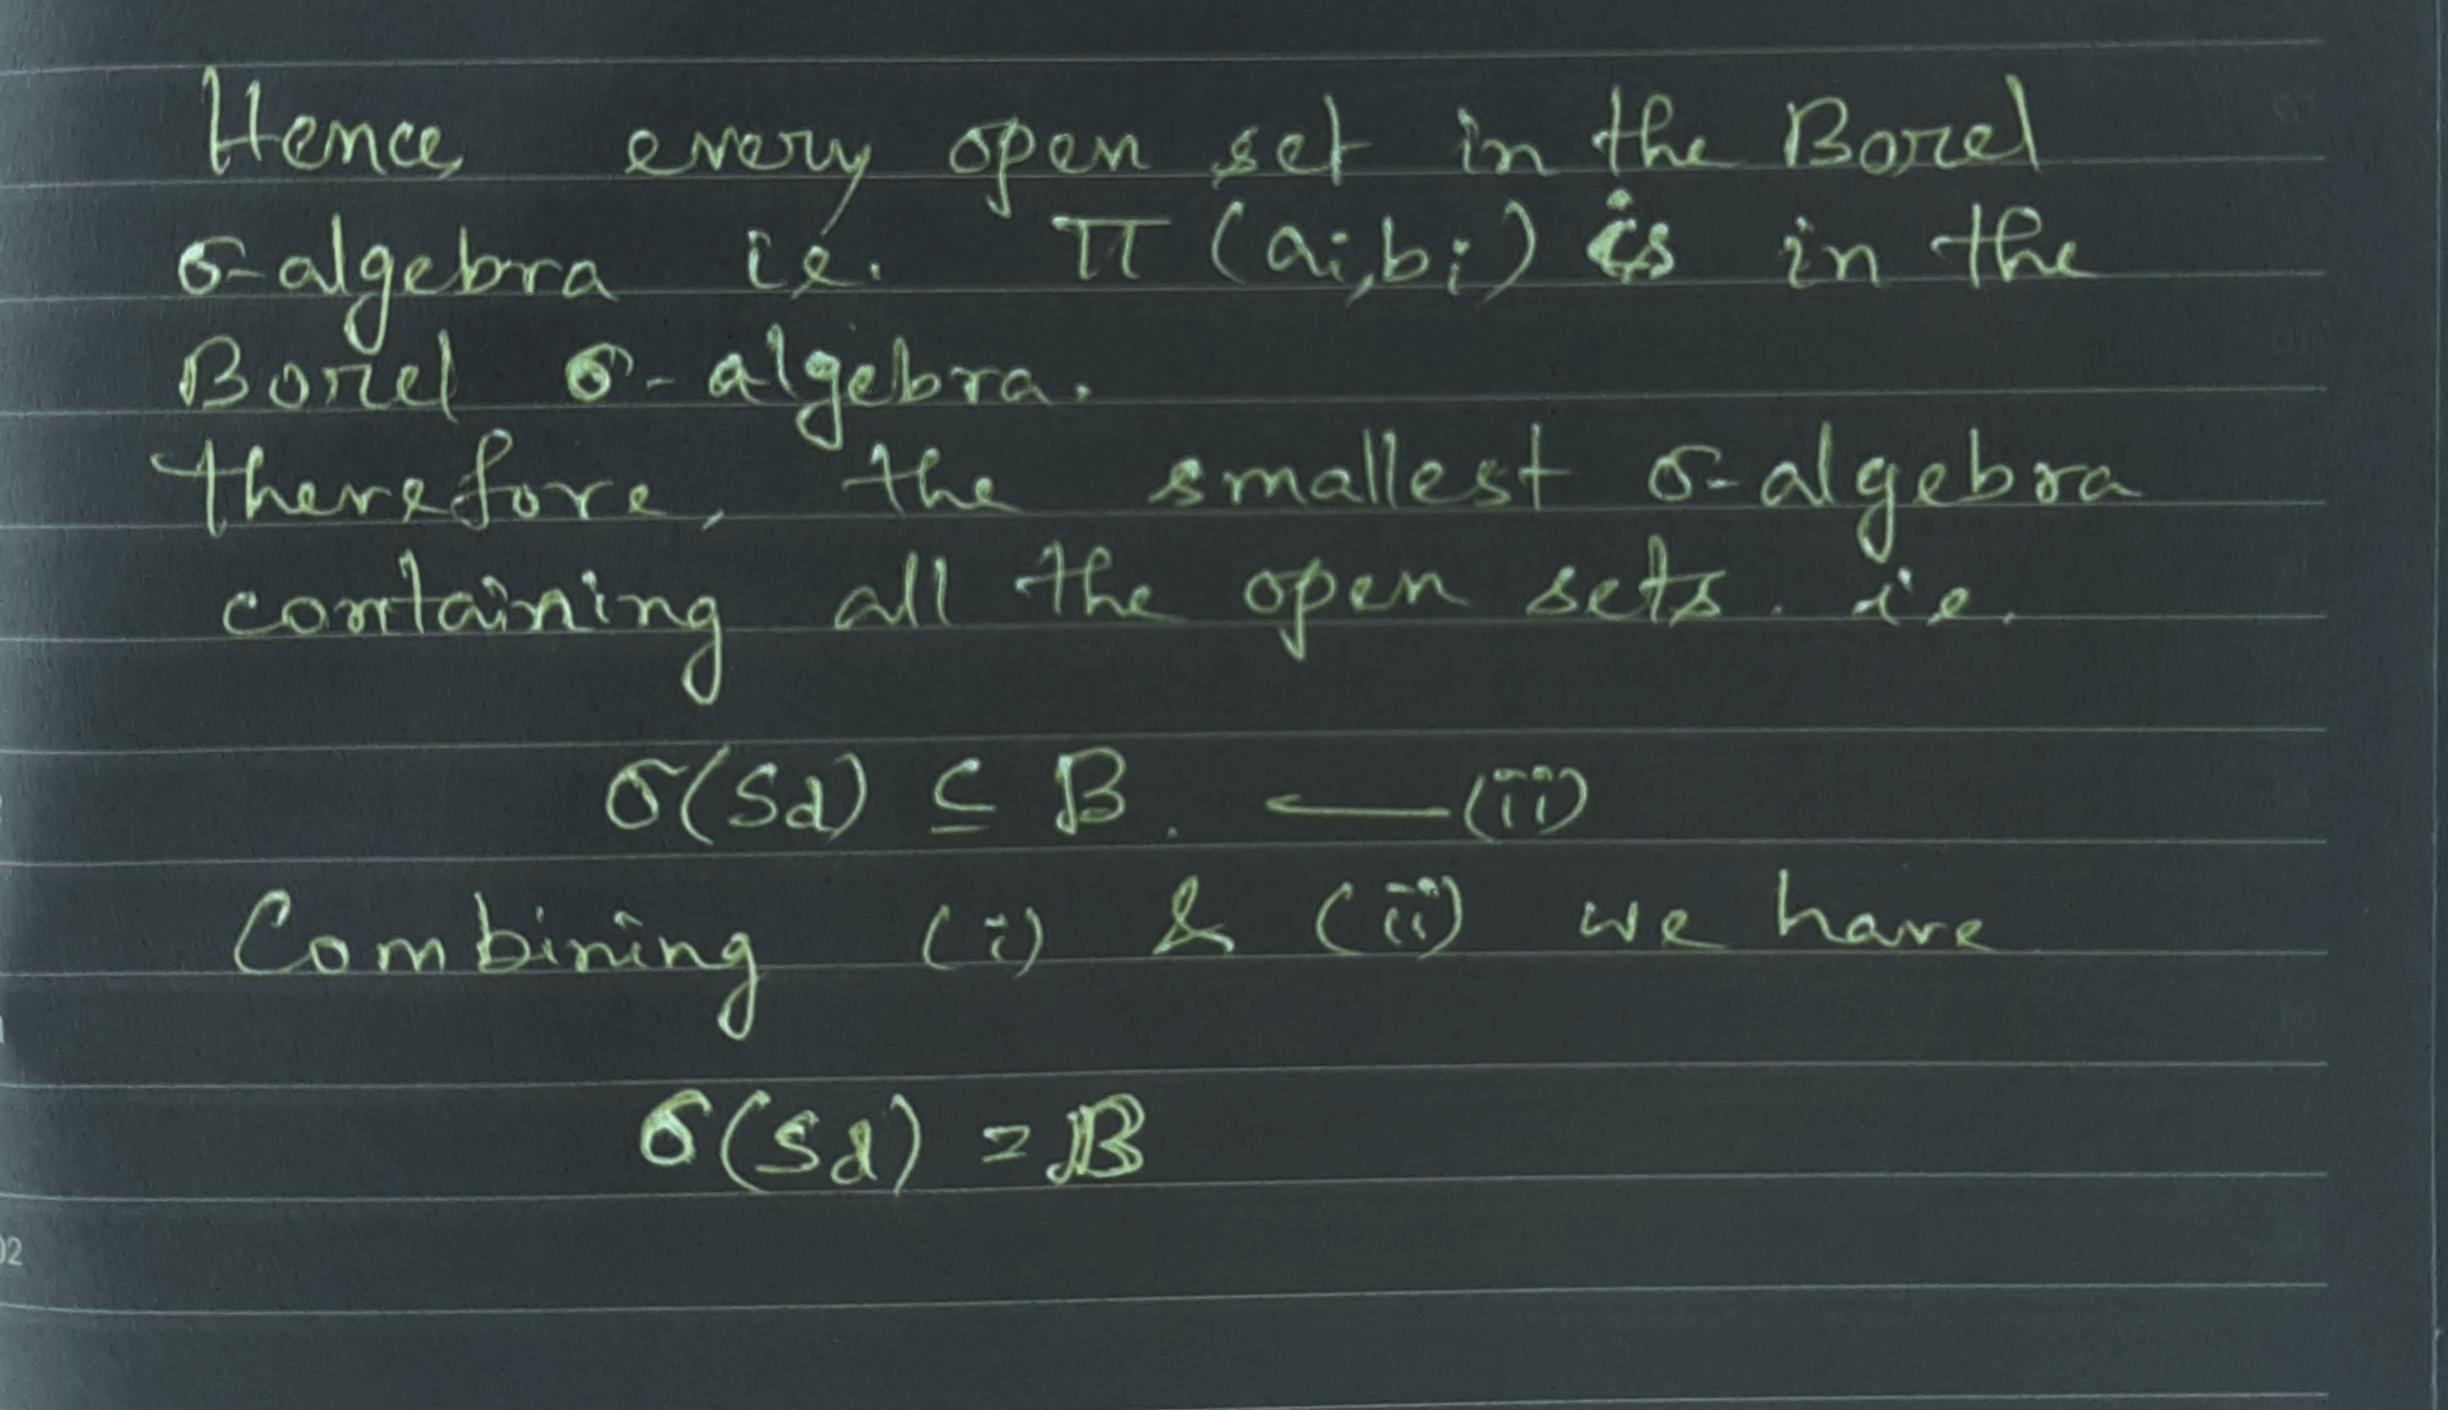 Hence every open set in the Borel
σ-algebra ie. π (ai,bi) is in the
Borel σ-algebra.
therefore, the smallest σ-algebra
containing all the open sets. ie.
σ(Sd) ⊆ B. — (ii)
Combining (i) & (ii) we have
σ(Sd) = B
02